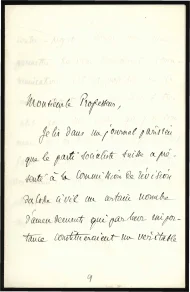 Monsieur le Professeur,
Je lis dans un journal parisien
que le parti socialiste suisse a pré-
senté à la Commission de révision
du Code civil un certain nombre
d'amendements qui par leur impor-
tance constitueraient un véritable